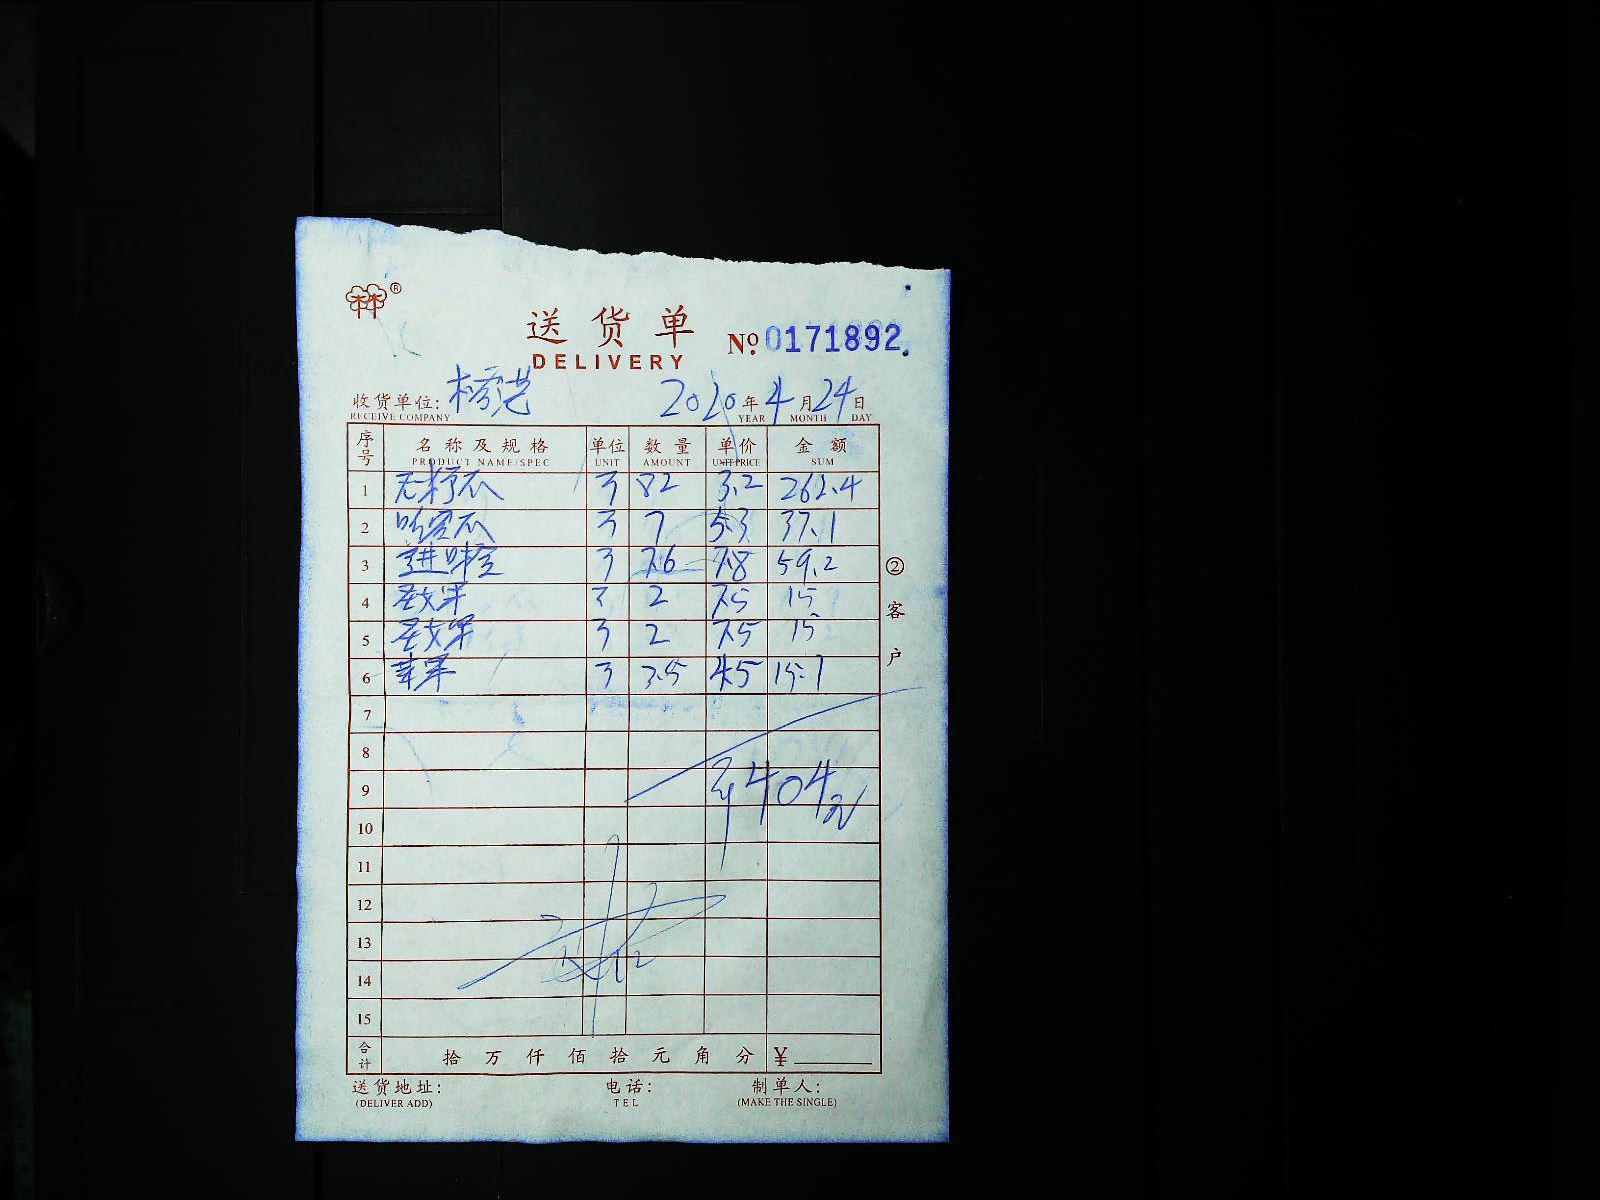 送货单
DELIVERY
№ 0171892
收货单位: 2020年4月24日
RECEIVE COMPANY YEAR MONTH DAY
序号 名称及规格 单位 数量 单价 金额
PRODUCT NAME/SPEC UNIT AMOUNT UNIT PRICE SUM
1 无籽瓜 82 3.2 262.4
2 哈密瓜 7 5.3 37.1
3 7.6 7.8 59.2
4 圣女果 2 7.5 15
5 圣女果 2 7.5 15
6 苹果 3.5 4.5 15.7
7
8
9 404元
10
11
12
13
14
15
合计 拾 万 仟 佰 拾 元 角 分 ¥
送货地址: 电话: 制单人:
(DELIVER ADD) TEL (MAKE THE SINGLE)
②客户